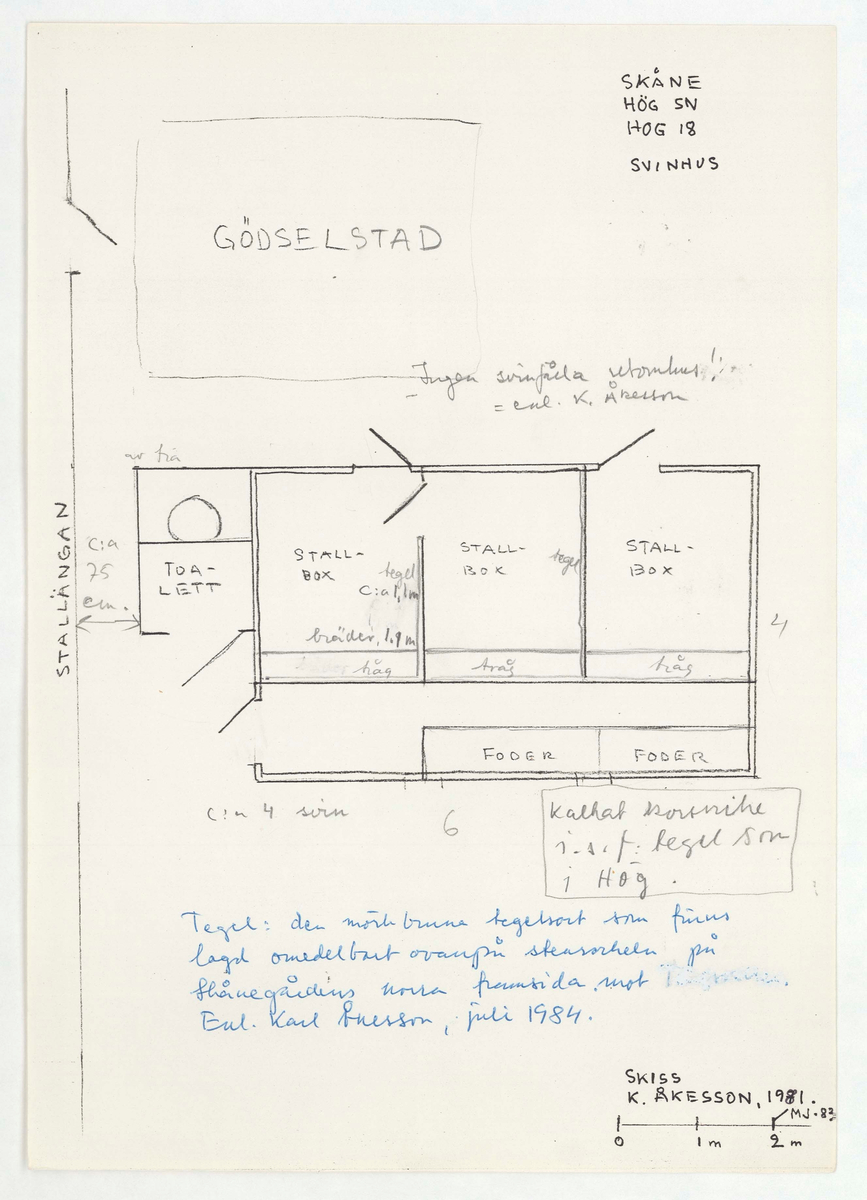 SKÅNE
HÖG SN
HÖG 18
SVINHUS
GÖDSELSTAD
Ingen svinfålla utomhus!
= enl. K. Åkesson
av trä
STALLÄNGAN
C:a
75
cm.
TOA-
LETT
STALL-
BOX
tegel
C:a 1,1 m
bräder, 1.9 m
STALL-
BOX
tegel
STALL-
BOX
tråg
tråg
tråg
4
FODER
FODER
C:a 4 svin
6
Kalkat
i.s.f. tegel som
i Hög.
Tegel: den mörkbruna tegelsort som finns
lagd omedelbart ovanpå stensockeln på
Skånegårdens norra framsida mot
Enl. Karl Åkesson, juli 1984.
SKISS
K. ÅKESSON, 1981.
MJ-83
0 1 m 2 m